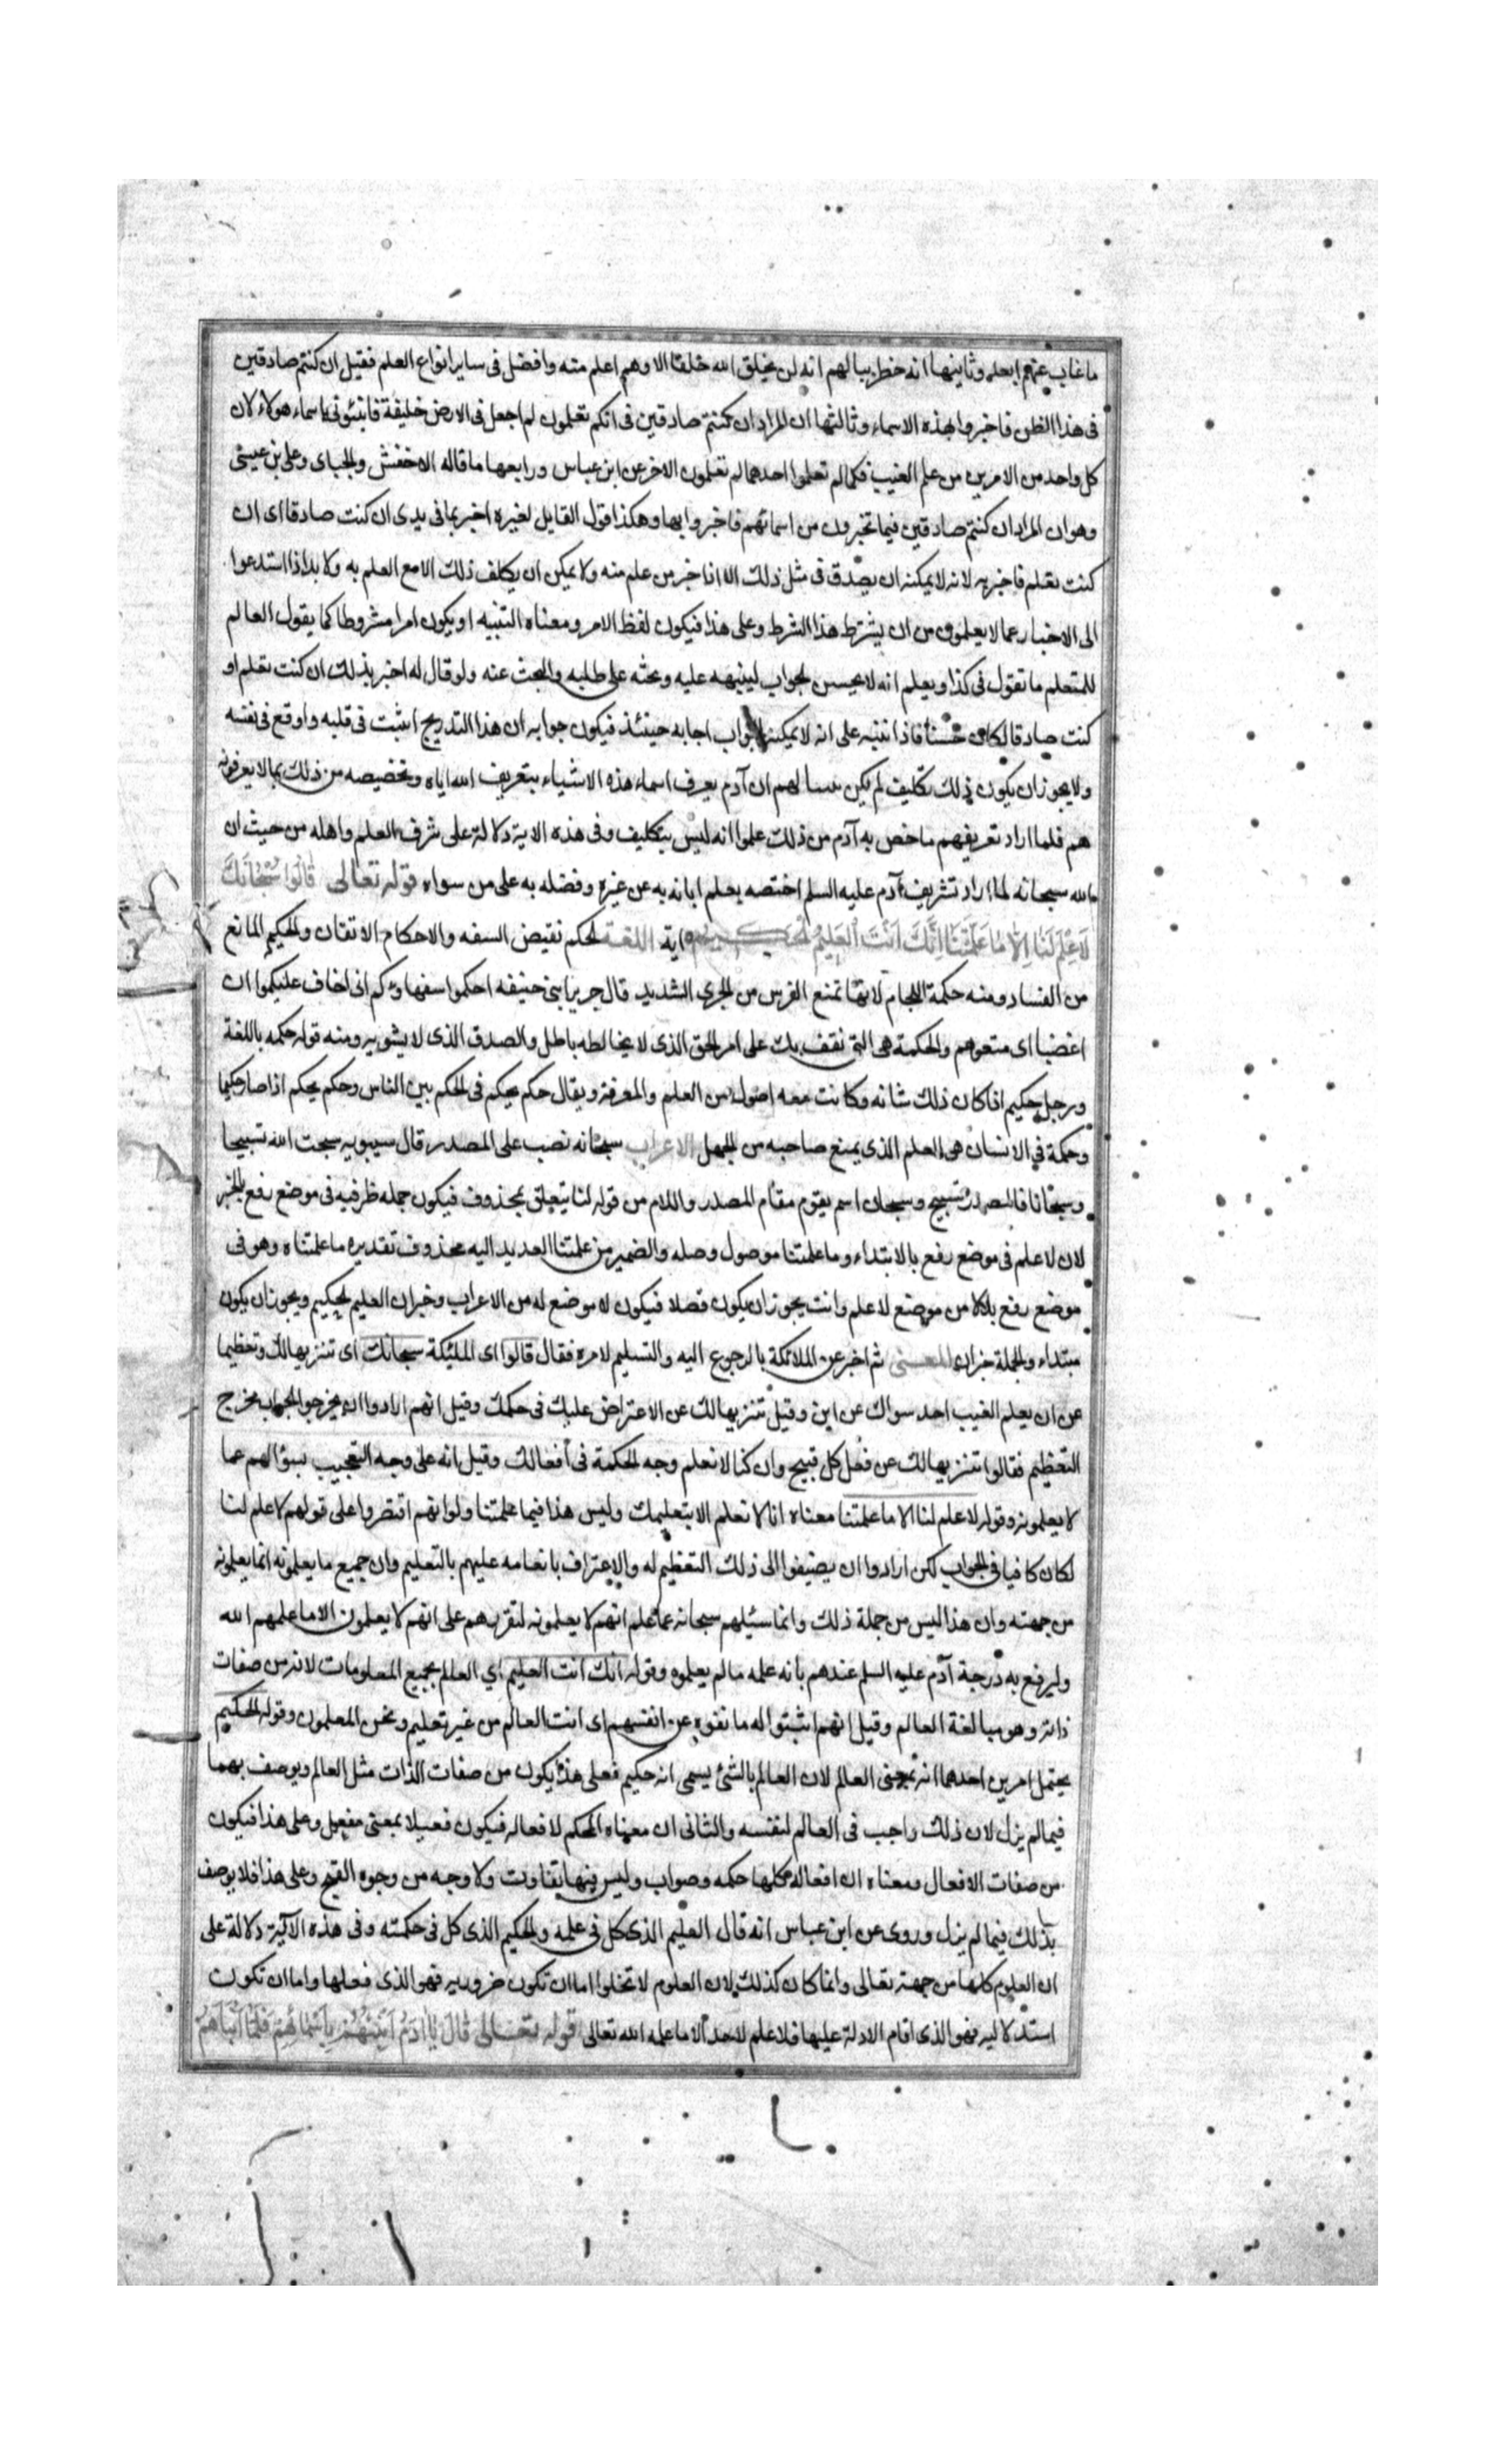 ما غاب عنهم ابعلم وثانيها انه خطر ببالهم انه لن يخلق الله خلقا الا وهم اعلم منه وافضل فى ساير انواع العلم فقيل ان كنتم صادقين
فى هذا الظن فاخبروا بهذه الاسماء وثالثها ان المراد ان كنتم صادقين فى انكم تعلمون لم اجعل فى الارض خليفة فانبئونى باسماء هولاء لان
كل واحد من الامرين من علم الغيب فكما لم تعلموا احدهما لم تعلمون الاخر عن ابن عباس ورابعها ما قاله الاخفش والجبائ وعلى بن عيسى
وهو ان المراد ان كنتم صادقين فيما تخبرون من اسمائهم فاخبروا بها وهكذا قول القايل لغيره اخبر بما فى يدى ان كنت صادقا اى ان
كنت تعلم فاخبر به لانه لا يمكنه ان يصدق فى مثل ذلك الا اذا خبر عن علم منه ولا يمكن ان يكلف ذلك الا مع العلم به ولا بد اذا استدعوا
الى الاخبار عما لا يعلمون من ان يشترط هذا الشرط وعلى هذا فيكون لفظ الامر ومعناه التنبيه او يكون امرا مشروطا كما يقول العالم
للمتعلم ما تقول فى كذا ويعلم انه لا يحسن الجواب لينبهه عليه ويحثه على طلبه والبحث عنه ولو قال له اخبر بذلك ان كنت تعلم او
كنت صادقا لكان حسنا فاذا تنبه على انه لا يمكنه الجواب اجابه حينئذ فيكون جوابه ان هذا التدريج اثبت فى قلبه واوقع فى نفسه
ولا يجوز ان يكون ذلك تكليف لم يكن لهم ان آدم يعرف اسماء هذه الاشياء بتعريف الله اياه وتخصيصه من ذلك بما لا يعرفونه
هم فلما اراد تعريفهم ما خص به آدم من ذلك علموا انه ليس بتكليف وفى هذه الاية دلالة على شرف العلم واهله من حيث ان
الله سبحانه لما اراد تشريف آدم عليه السلم اختصه بعلم ابانه به عن غيره وفضله به على من سواه قوله تعالى قَالُوا سُبْحَانَكَ
لَا عِلْمَ لَنَا اِلَّا مَا عَلَّمْتَنَا اِنَّكَ اَنْتَ الْعَلِيمُ الْحَكِيمُ اية اللغة الحكم نقيض السفه والاحكام الاتقان والحكيم المانع
من الفساد ومنه حكمة اللجام لانها تمنع الفرس من الجرى الشديد قال جرير ابنى حنيفه احكموا سفهاءكم انى اخاف عليكموا ان
اغضبا اى منعوهم والحكمة هى التى تقف بك على امر الحق الذى لا يخالطه باطل والصدق الذى لا يشوبه ومنه قوله حكمه بالغة
ورجل حكيم اذا كان ذلك شانه وكانت معه اصول من العلم والمعرفة ويقال حكم يحكم فى الحكم بين الناس وحكم يحكم اذا صار حكيما
وحكمة فى الانسان هى العلم الذى يمنع صاحبه من الجهل الاعراب سبحانه نصب على المصدر قال سيبويه سبحت الله تسبيحا
وسبحانا فالمصدر تسبيح وسبحان اسم يقوم مقام المصدر واللام من قوله لنا يتعلق بمحذوف فيكون جمله ظرفيه فى موضع رفع بالخبر
لان لا علم فى موضع رفع بالابتداء وما علمتنا موصول وصله والضمير من علمتنا العديد اليه محذوف تقديره ما علمتناه وهو فى
موضع رفع بدلا من موضع لا علم وانت يجوز ان يكون فصلا فيكون لا موضع له من الاعراب وخبر ان العليم الحكيم ويجوز ان يكون
مبتداء والجملة خبر ان المعنى ثم اخبر عن الملائكة بالرجوع اليه والتسليم لامره فقال قالوا اى المليكة سبحانك اى تنزيها لك وتعظيما
عن ان يعلم الغيب احد سواك عن ابن وقيل تنزيها لك عن الاعتراض عليك فى حكمك وقيل انهم ارادوا ان يخرجوا الجواب مخرج
التعظيم فقالوا تنزيها لك عن فعل كل قبيح وان كنا لا نعلم وجه الحكمة فى أفعالك وقيل انه على وجه التعجب بسؤالهم عما
لا يعلمونه وقوله لا علم لنا الا ما علمتنا معناه انا لا نعلم الا بتعليمك وليس هذا فيما علمتنا ولو انهم اقتصروا على قولهم لا علم لنا
لكان كافيا فى الجواب لكن ارادوا ان يضيفوا الى ذلك التعظيم له والاعتراف بانعامه عليهم بالتعليم وان جميع ما يعلمونه انما يعلمونه
من جهته وان هذا ليس من جملة ذلك وانما سئلهم سبحانه عما علم انهم لا يعلمونه لتقررهم على انهم لا يعلمون الا ما علمهم الله
وليرفع به درجة آدم عليه السلم عندهم بانه علمه ما لم يعلموه وقوله انك انت العليم اي العالم بجميع المعلومات لانه من صفات
ذاته وهو مبالغة العالم وقيل انهم اثبتوا له ما نفوه عن انفسهم اى انت العالم من غير تعليم ونحن المعلمون وقوله الحكيم
يحتمل امرين احدهما انه بمعنى العالم لان العالم بالشئ يسمى انه حكيم فعلى هذا يكون من صفات الذات مثل العالم ويوصف بهما
فيما لم يزل لان ذلك واجب فى العالم لنفسه والثانى ان معناه المحكم لافعاله فيكون فعيلا بمعنى مفعل وعلى هذا فيكون
من صفات الافعال ومعناه ان افعاله كلها حكمه وصواب وليس فيها تفاوت ولا وجه من وجوه القبح وعلى هذا فلا يوصف
بذلك فيما لم يزل وروى عن ابن عباس انه قال العليم الذى كمل فى علمه والحكيم الذى كمل فى حكمته وفى هذه الآية دلالة على
ان العلوم كلها من جهته تعالى وانما كان كذلك لان العلوم لا تخلوا اما ان تكون ضروريه فهو الذى فعلها واما ان تكون
استدلاليه فهو الذى اقام الادلة عليها فلا علم لاحد الا ما علمه الله تعالى قوله تعالى قَالَ يَا آدَمُ اَنْبِئْهُمْ بِاَسْمَائِهِمْ فَلَمَّا اَنْبَاَهُمْ